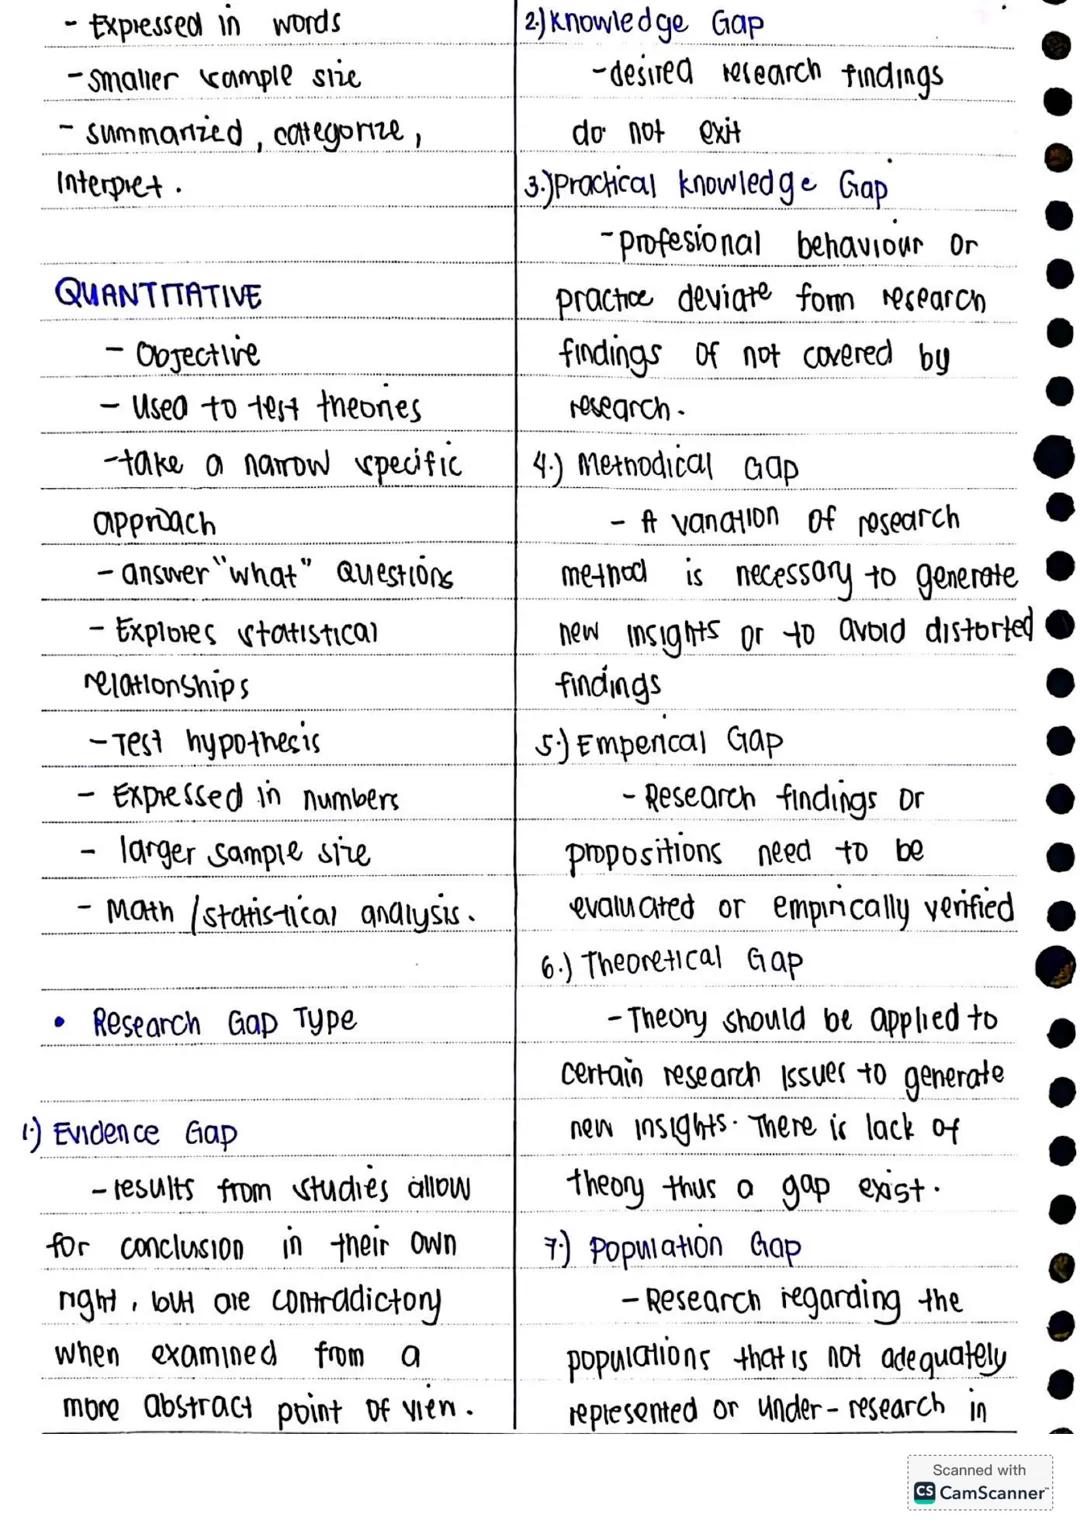 - Expressed in words
- smaller sample size
- summarized, categorize,
Interpret.
QUANTITATIVE
- Objective
- Used to test theories
- take a narrow specific
approach
- answer "what" Questions
- Explores statistical
relationships
- Test hypothesis
- Expressed in numbers
- larger sample size
- Math / statistical analysis.
• Research Gap Type
1.) Evidence Gap
- results from studies allow
for conclusion in their own
right, but are contradictory
when examined from a
more abstract point of vien.
2.) Knowledge Gap
- desired research findings
do not exit
3.) Practical knowledge Gap
- profesional behaviour or
practice deviate form research
findings of not covered by
research.
4.) Methodical Gap
- A variation of research
method is necessary to generate
new insights or to avoid distorted
findings
5.) Emperical Gap
- Research findings or
propositions need to be
evaluated or empirically verified
6.) Theoretical Gap
- Theory should be applied to
certain research issues to generate
new insights. There is lack of
theory thus a gap exist.
7.) Population Gap
- Research regarding the
populations that is not adequately
represented or under-research in
Scanned with
CS CamScanner